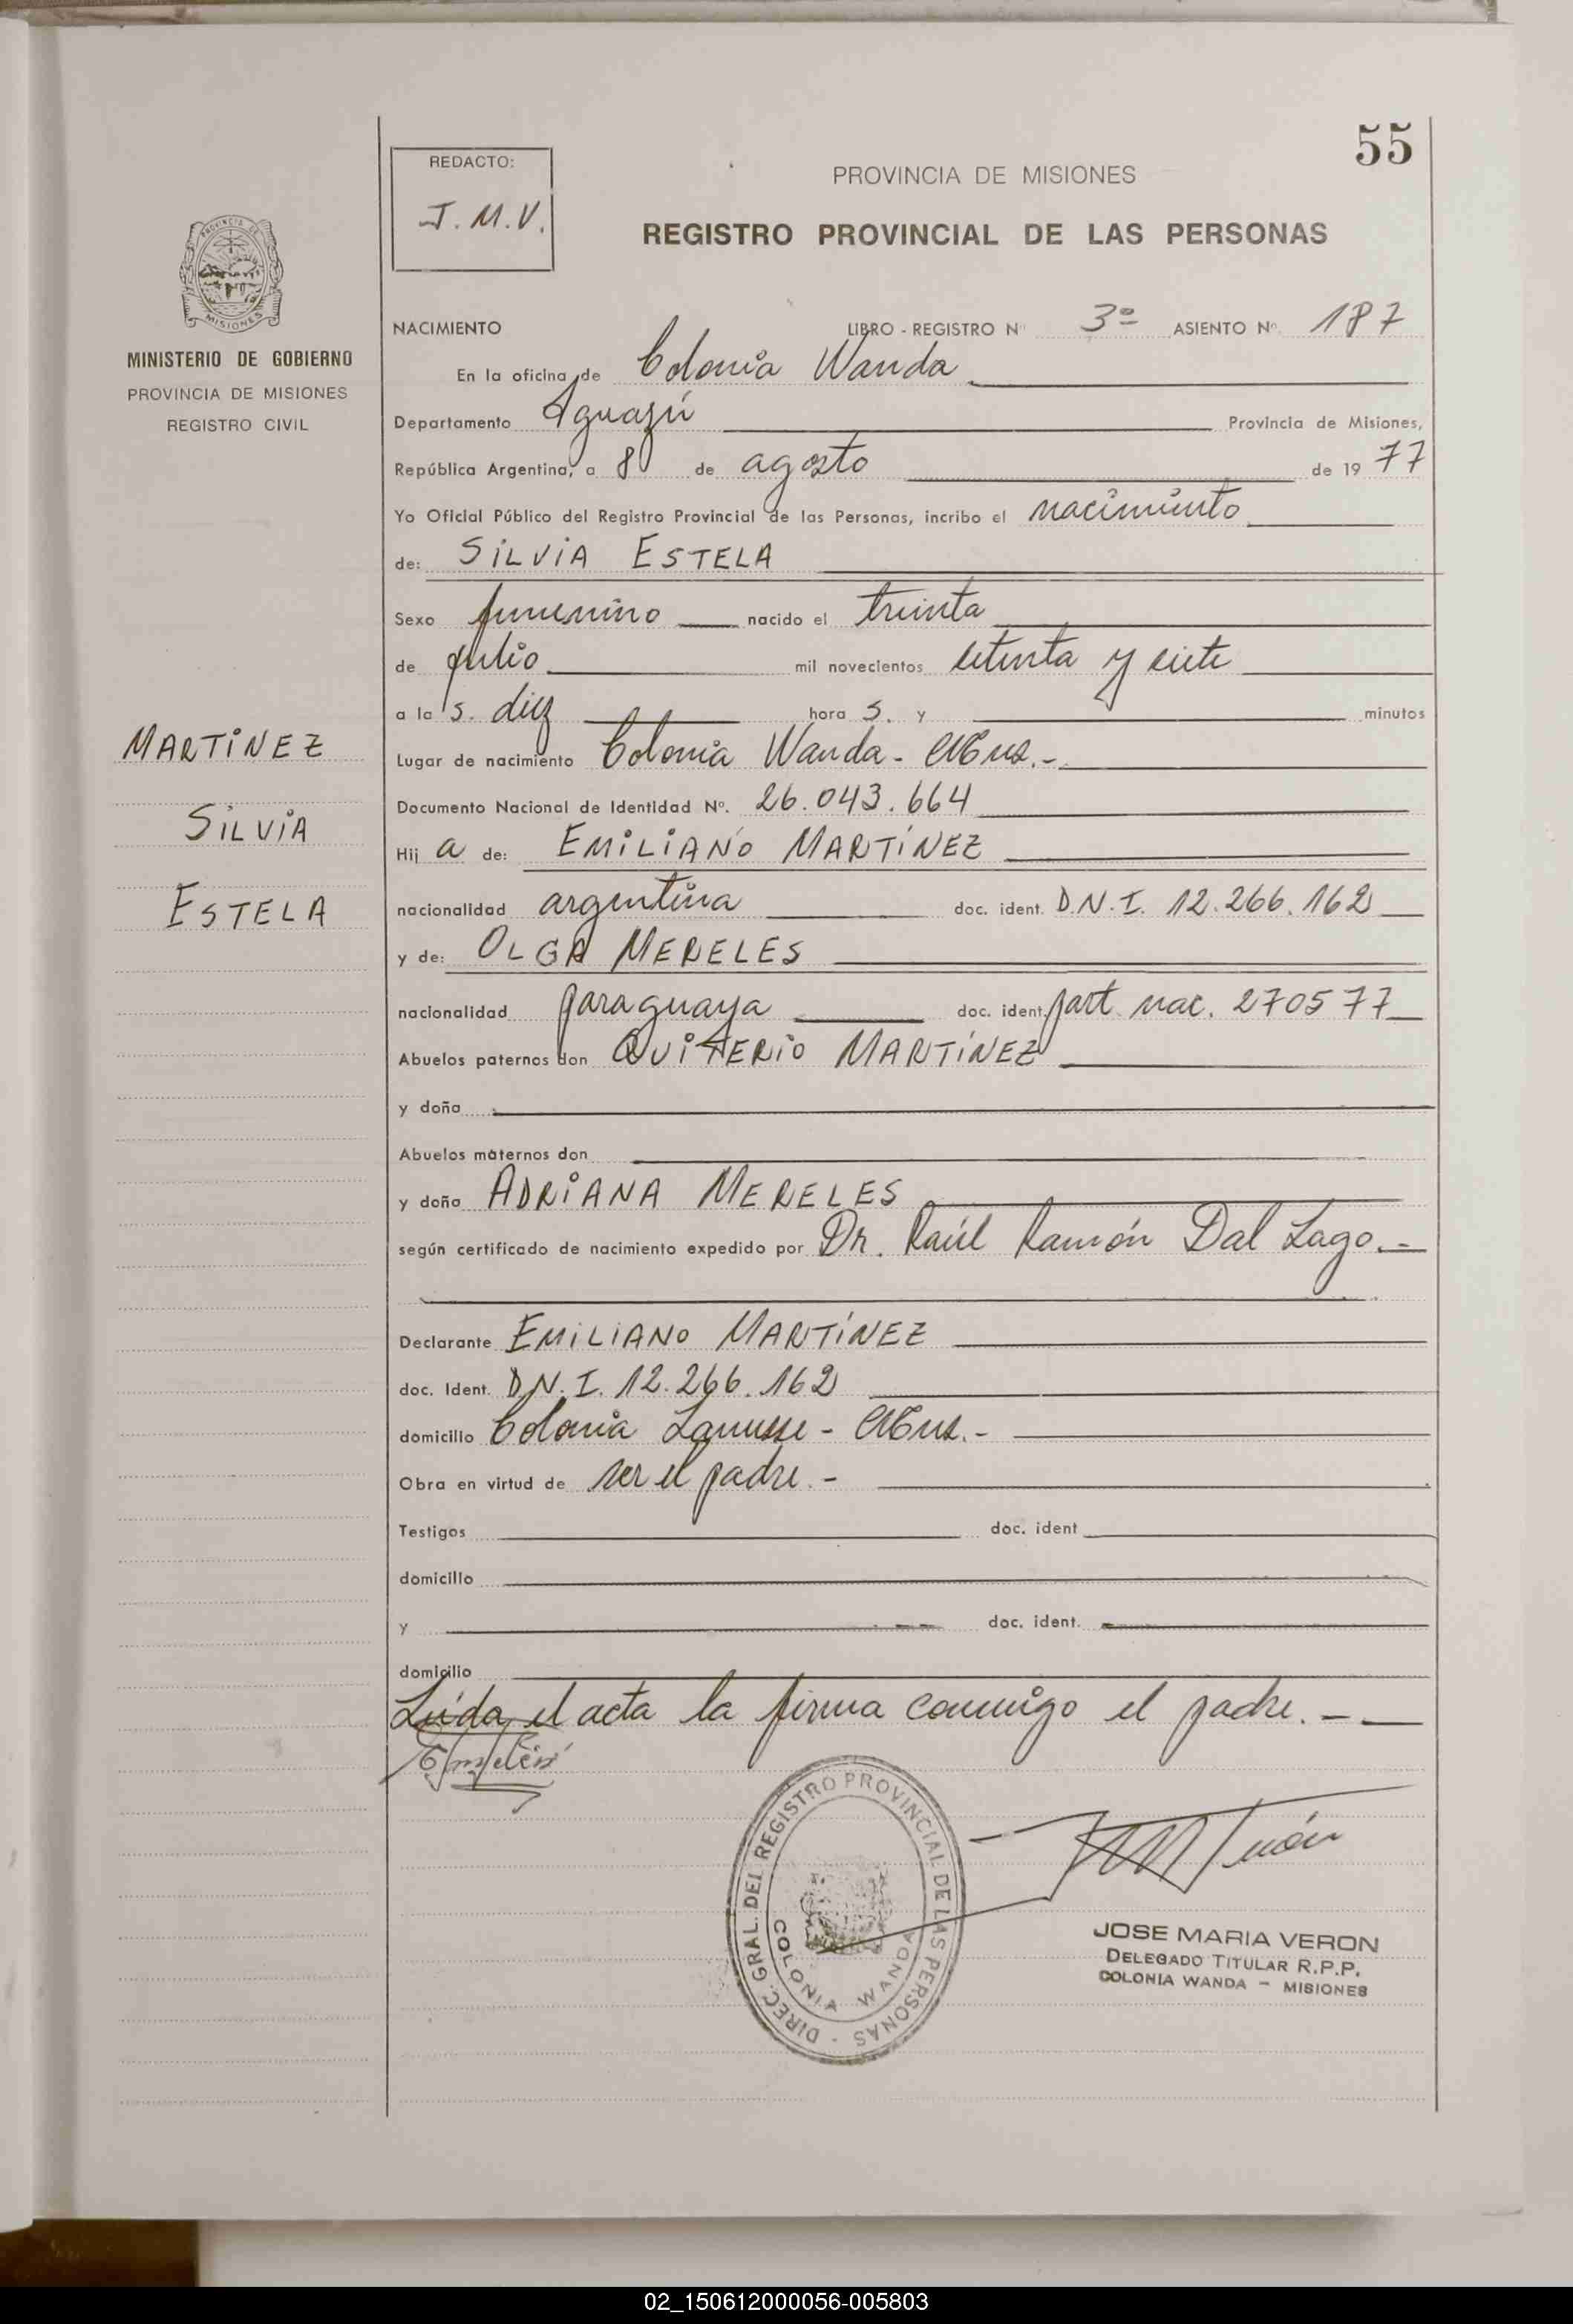 55
REDACTO:
J.M.V.
PROVINCIA DE MISIONES
REGISTRO PROVINCIAL DE LAS PERSONAS
PROVINCIA DE
MISIONES
MINISTERIO DE GOBIERNO
PROVINCIA DE MISIONES
REGISTRO CIVIL
MARTíNEZ
SiLViA
ESTELA
NACIMIENTO LIBRO - REGISTRO Nº 3º ASIENTO Nº. 187
En la oficina de Colonia Wanda
Departamento Iguazú Provincia de Misiones,
República Argentina, a 8 de agosto de 1977
Yo Oficial Público del Registro Provincial de las Personas, incribo el nacimiento
de: SiLViA ESTELA
Sexo femenino nacido el treinta
de julio mil novecientos setenta y siete
a las. diez horas. y minutos
Lugar de nacimiento Colonia Wanda - Mnes.-
Documento Nacional de Identidad Nº. 26.043.664
Hija de: EMiLiANO MARTíNEZ
nacionalidad argentina doc. ident. D.N.I. 12.266.162
y de: OLGA MERELES
nacionalidad paraguaya doc. ident. part. nac. 270577
Abuelos paternos don QUiTERiO MARTíNEZ
y doña
Abuelos maternos don
y doña ADRiANA MERELES
según certificado de nacimiento expedido por Dr. Raúl Ramón Dal Lago.-
Declarante EMiLiANO MARTíNEZ
doc. Ident. D.N.I. 12.266.162
domicilio Colonia Lanusse - Mnes.-
Obra en virtud de ser el padre.-
Testigos doc. ident
domicilio
y doc. ident.
domicilio
Leída el acta la firma conmigo el padre.-
DIREC. GRAL. DEL REGISTRO PROVINCIAL DE LAS PERSONAS -
COLONIA WANDA
JOSE MARIA VERON
DELEGADO TITULAR R.P.P.
COLONIA WANDA - MISIONES
02_150612000056-005803